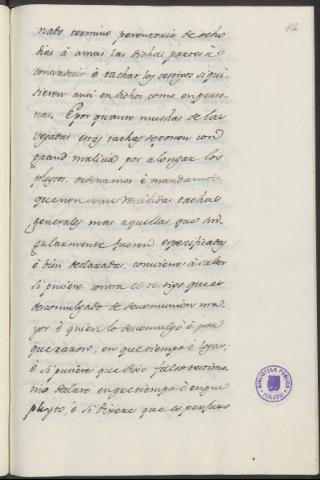 116
nado termino perentorio de ocho
dias à amas las dichas partes à
contradecir è tachar los testigos si qui-
sieren ansi en dichos como en perso-
nas. E por quanto muchas de las
vegadas estas tachas se ponen con
grand malicia por alongar los
pleytos, ordenamos è mandamos
que non sean recibidas tachas
generales mas aquellas que sin-
gularmente fueren especificadas
è bien declaradas, conviene à saber
si pusiere contra el testigo que es
descomulgado de descomunion ma-
yor è quien lo descomulgò è por
que razon, en que tiempo è logar;
è si pusiere que dixo falso testimo-
nio declare en que tiempo è en que
pleyto, è si dixere que es perjuro
BIBLIOTECA PUBLICA
TOLEDO